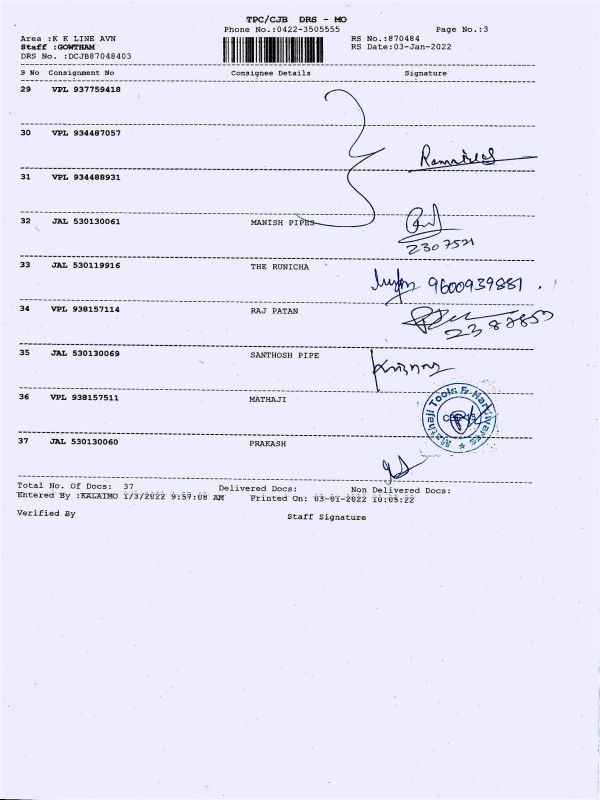 TPC/CJB DRS - MO
Phone No.:0422-3505555 Page No.:3
Area :K K LINE AVN RS No.:870484
Staff :GOWTHAM RS Date:03-Jan-2022
DRS No. :DCJB87048403
S No Consignment No Consignee Details Signature
29 VPL 937759418
30 VPL 934487057
31 VPL 934488931
32 JAL 530130061 MANISH PIPES
2307521
33 JAL 530119916 THE RUNICHA 9600939881 .
34 VPL 938157114 RAJ PATAN
35 JAL 530130069 SANTHOSH PIPE
36 VPL 938157511 MATHAJI
Mathaji Tools & Hardwares
37 JAL 530130060 PRAKASH
Total No. Of Docs: 37 Delivered Docs: Non Delivered Docs:
Entered By :KALAIMO 1/3/2022 9:57:08 AM Printed On: 03-01-2022 10:05:22
Verified By Staff Signature